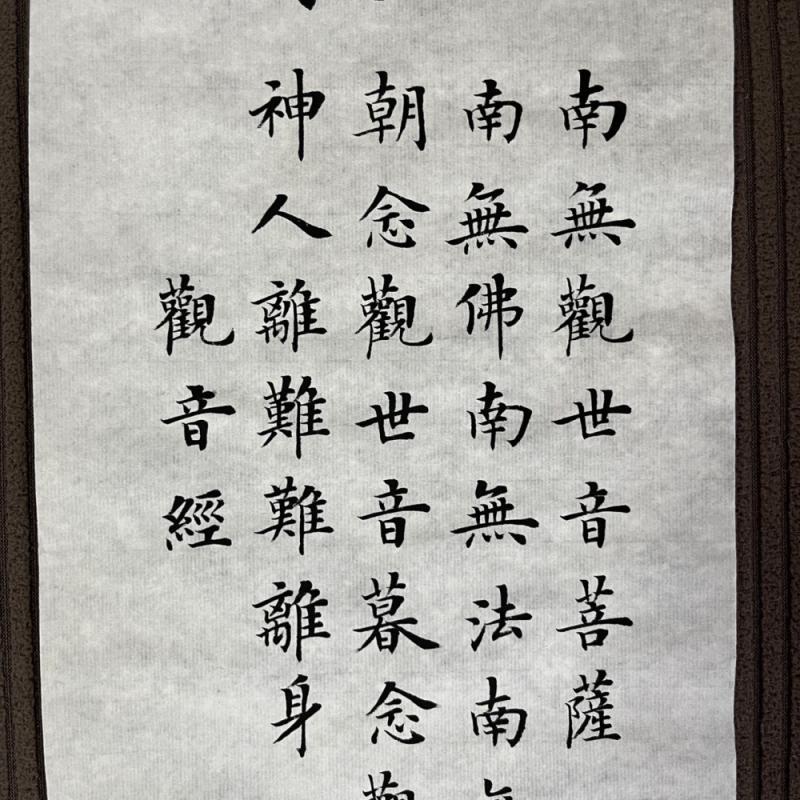 南無觀世音菩薩
南無佛南無法南
朝念觀世音暮念觀
神人離難難離身
觀音經